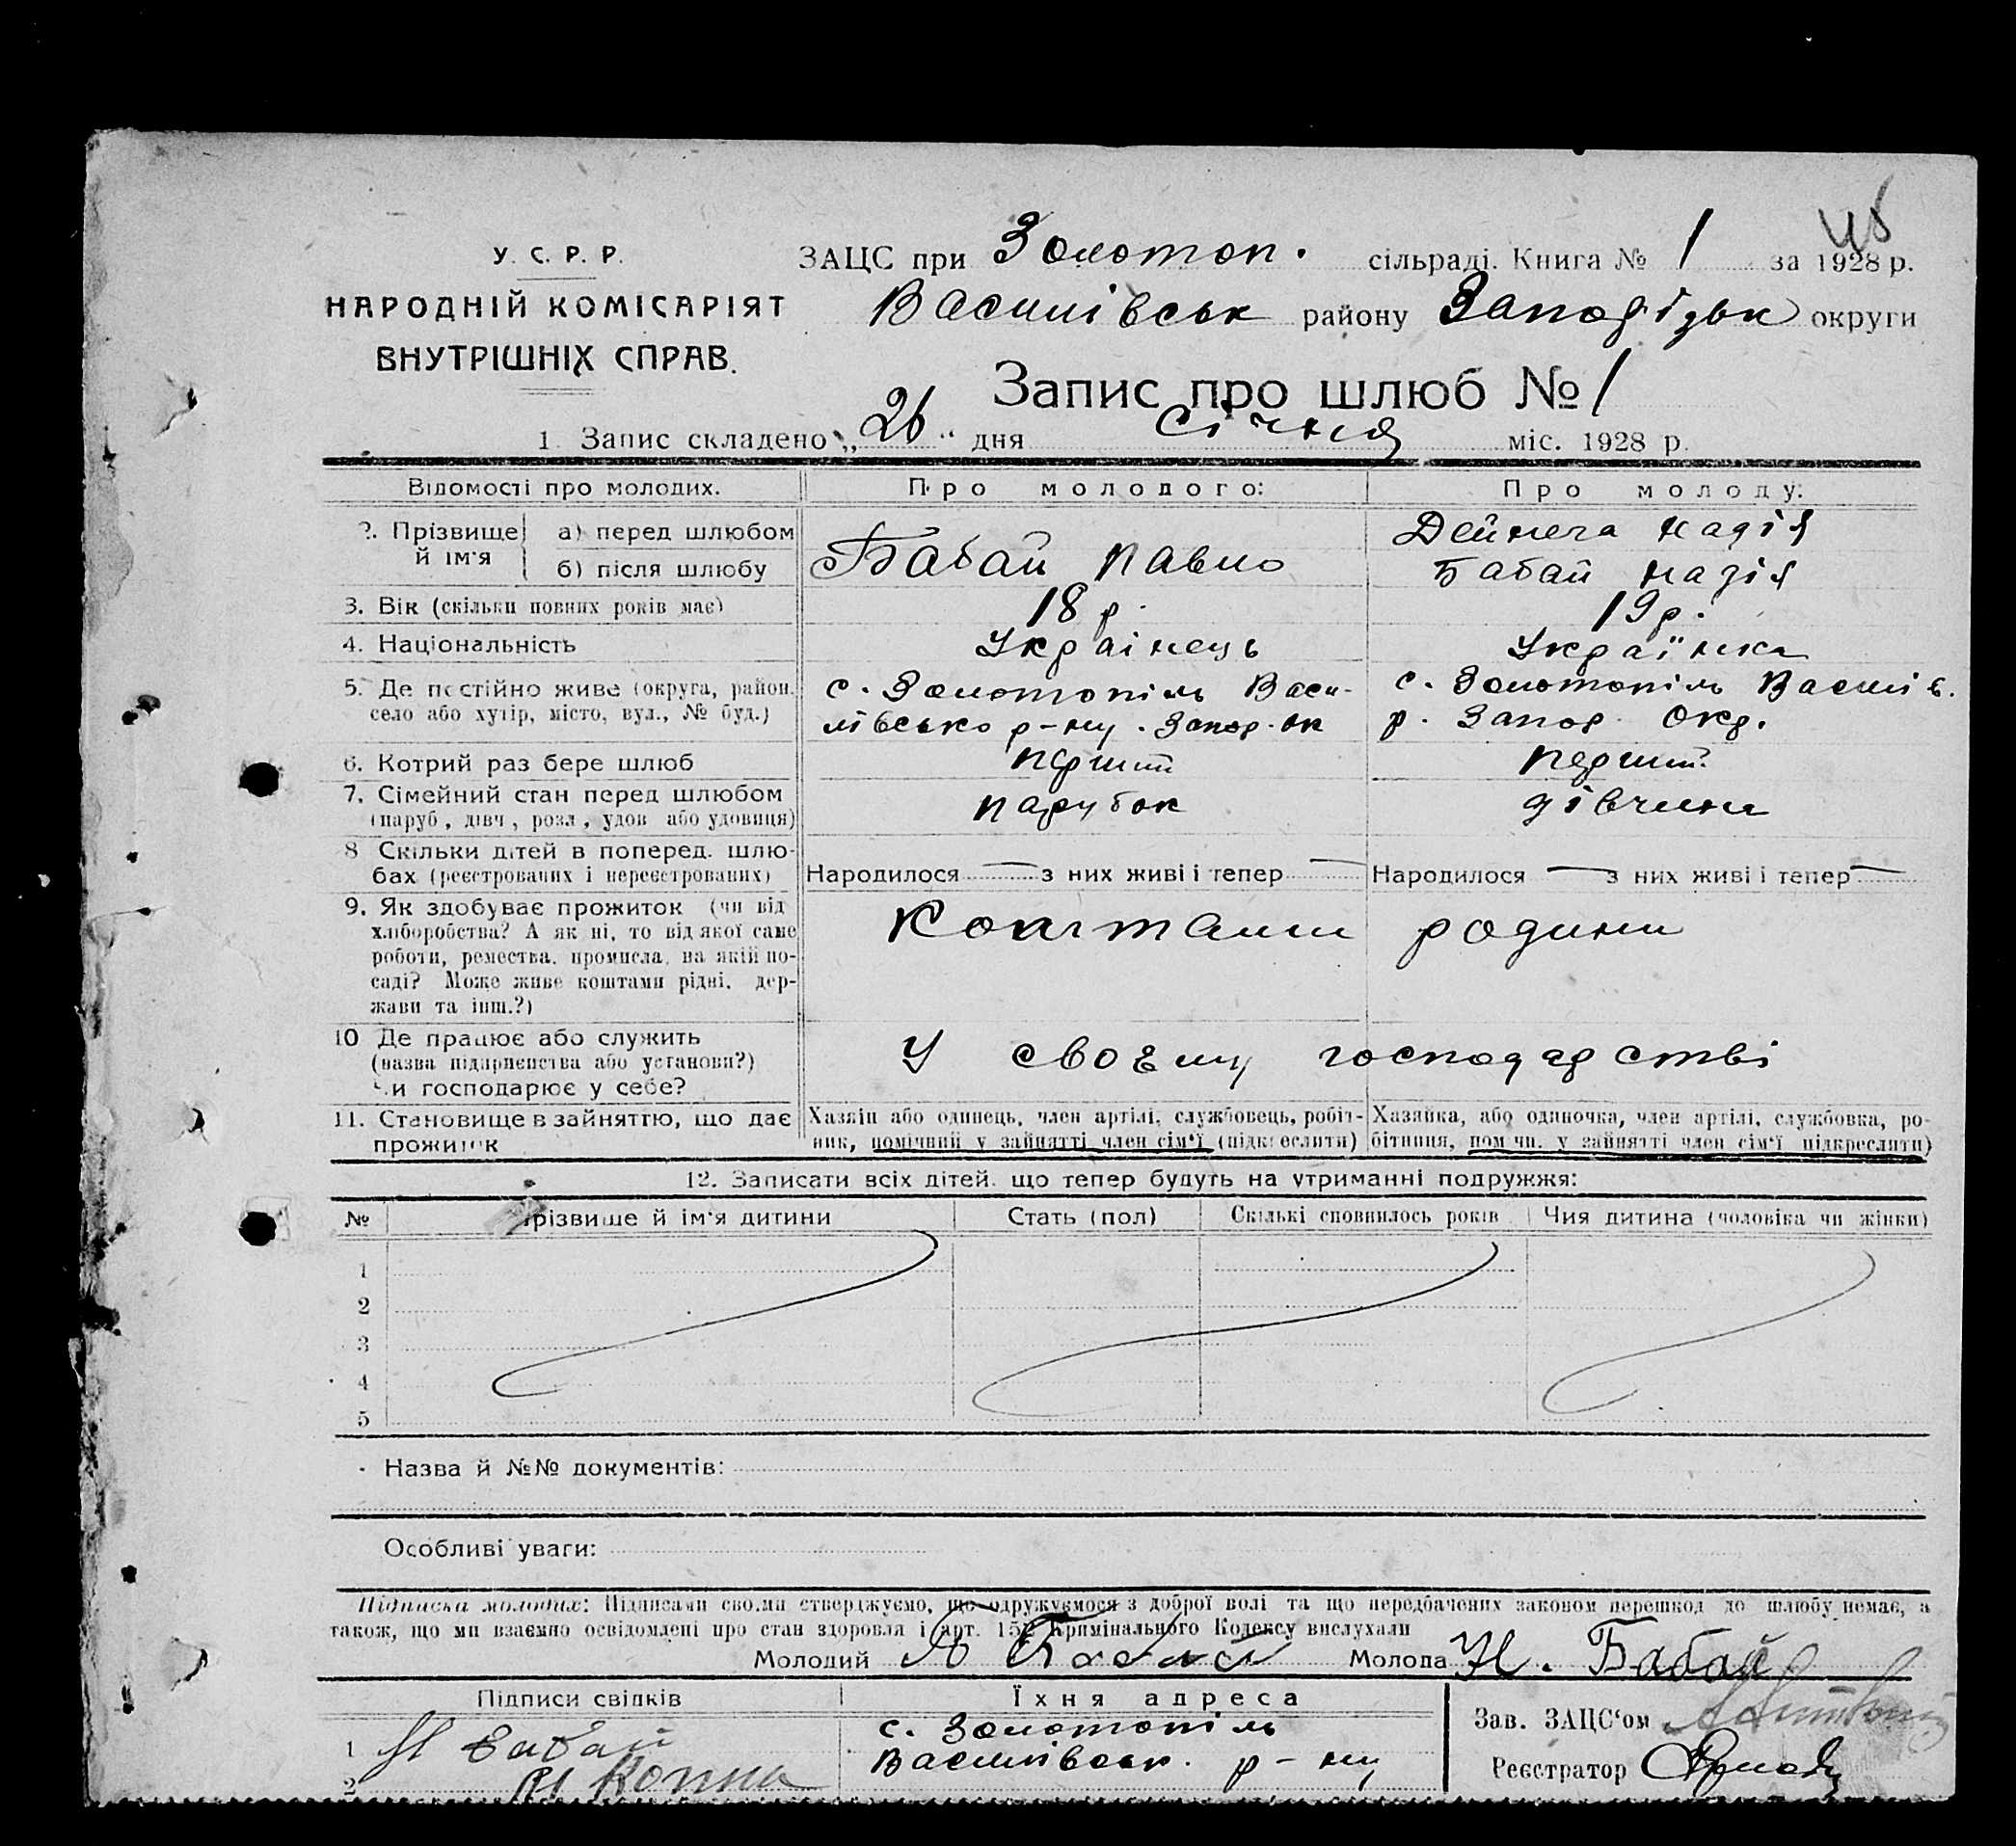 У. С. Р. Р.
НАРОДНІЙ КОМІСАРІЯТ
ВНУТРІШНІХ СПРАВ.
ЗАЦС при Золотоп. сільраді. Книга № 1 за 1928 р.
Василівськ району Запорізьк округи
Запис про шлюб № 1
1 Запис складено „26“ дня січня міс. 1928 р.
Відомості про молодих.
Про молодого:
Про молоду:
2. Прізвище й ім'я
а) перед шлюбом
б) після шлюбу
Бабай Павло
Дейнега Надія
Бабай Надія
3. Вік (скільки повних років має)
18 р.
19 р.
4. Національність
Українець
Українка
5. Де постійно живе (округа, район,
село або хутір, місто, вул., № буд.)
с. Золотопіль Васи-
лівсько р-ну. Запор. ок
с. Золотопіль Василів.
р. Запор. Окр.
6. Котрий раз бере шлюб
перший
перший.
7. Сімейний стан перед шлюбом
(паруб, дівч, розл, удов або удовиця)
парубок
дівчина
8 Скільки дітей в поперед. шлю-
бах (реєстрованих і нереєстрованих)
Народилося — з них живі і тепер —
Народилося — з них живі і тепер —
9. Як здобуває прожиток (чи від
хліборобства? А як ні, то від якої саме
роботи, ремества, промисла, на якій по-
саді? Може живе коштами рідні, дер-
жави та інш.?)
Коштами родини
10 Де працює або служить
(назва підприємства або установи?)
Чи господарює у себе?
У своєму господарстві
11. Становище в зайняттю, що дає
прожиток
Хазяїн або одинець, член артілі, службовець, робіт-
ник, помічний у зайнятті член сім'ї (підкреслити)
Хазяйка, або одиночка, член артілі, службовка, ро-
бітниця, пом чн. у зайнятті член сім'ї підкреслити)
12. Записати всіх дітей, що тепер будуть на утриманні подружжя:
№
Прізвище й ім'я дитини
Стать (пол)
Скількі сповнилось років
Чия дитина (чоловіка чи жінки)
1
2
3
4
5
Назва й №№ документів:
Особливі уваги:
Підписка молодих: Підписами своїми стверджуємо, що одружуємося з доброї волі та що передбачених законом перешкод до шлюбу немає, а
також, що ми взаємно освідомлені про стан здоровля і арт. 15 Крімінального Кодексу вислухали
Молодий П Бабай
Молода Н. Бабай
Підписи свідків
Їхня адреса
1 Бабай
2
с. Золотопіль
Василівськ. р-ну
Зав. ЗАЦС'ом
Реєстратор